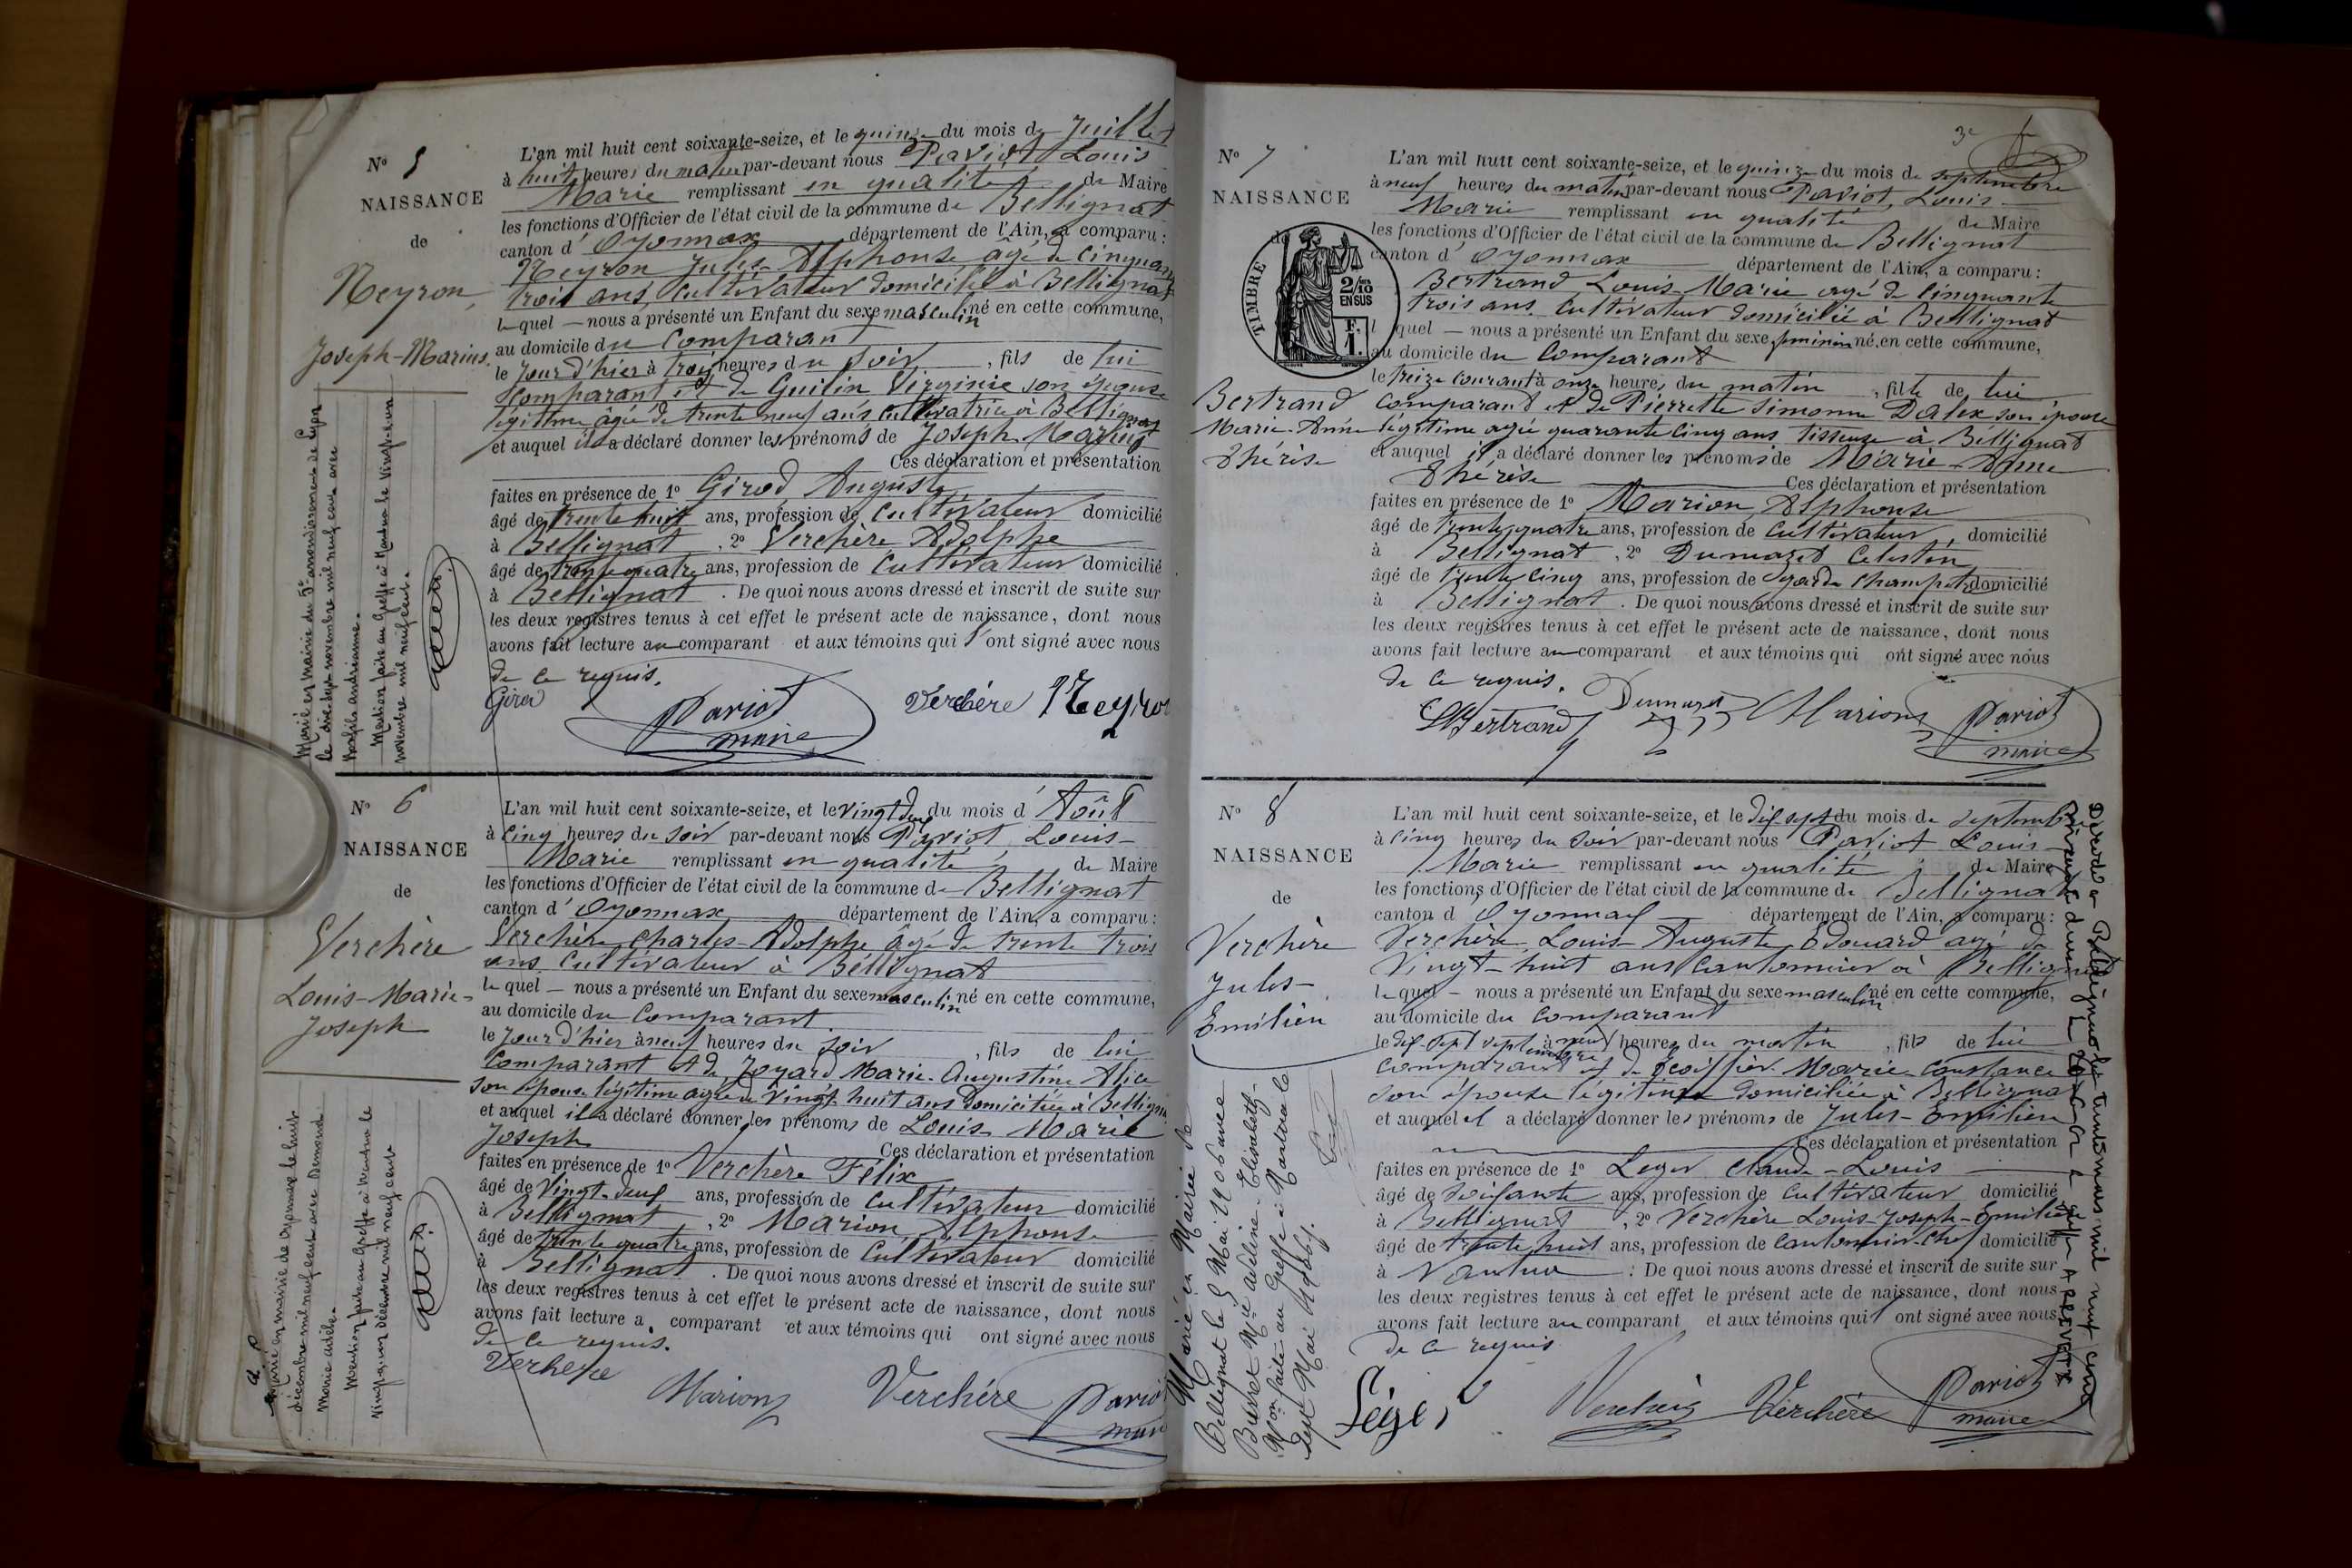 N° 5
NAISSANCE
de
Neyron
Joseph-Marius
Marié en mairie du 5e arrondissement de Lyon
le dix-sept novembre mil neuf cent avec
Mention faite au Greffe à Nantua le vingt-un
novembre mil neuf cent.
L'an mil huit cent soixante-seize, et le quinze du mois de Juillet
à huit heures du matin par-devant nous Paviot Louis
Marie remplissant en qualité de Maire
les fonctions d'Officier de l'état civil de la commune de Bellignat
canton d'Oyonnax département de l'Ain, a comparu :
Neyron Jules-Alphonse âgé de cinquante
trois ans, cultivateur domicilié à Bellignat
lequel — nous a présenté un Enfant du sexe masculin né en cette commune,
au domicile du Comparant
le Jour d'hier à trois heures du soir , fils de lui
comparant et de Guilin Virginie son épouse
légitime âgée de trente neuf ans cultivatrice à Bellignat
et auquel il a déclaré donner les prénoms de Joseph-Marius
Ces déclaration et présentation
faites en présence de 1° Girod Auguste
âgé de trente huit ans, profession de cultivateur domicilié
à Bellignat , 2° Verchère Adolphe
âgé de trente quatre ans, profession de Cultivateur domicilié
à Bellignat . De quoi nous avons dressé et inscrit de suite sur
les deux registres tenus à cet effet le présent acte de naissance, dont nous
avons fait lecture au comparant et aux témoins qui l'ont signé avec nous
de ce requis.
Girod Paviot Verchère Neyron
maire
N° 6
NAISSANCE
de
Verchère
Louis-Marie-
Joseph
Marié en mairie de Oyonnax le huit
décembre mil neuf cent avec
Marie Adèle.
Mention faite au Greffe à Nantua le
vingt-un décembre mil neuf cent
L'an mil huit cent soixante-seize, et le vingt deux du mois d'Août
à cinq heures du soir par-devant nous Paviot Louis-
Marie remplissant en qualité de Maire
les fonctions d'Officier de l'état civil de la commune de Bellignat
canton d'Oyonnax département de l'Ain, a comparu :
Verchère Charles-Adolphe âgé de trente trois
ans cultivateur à Bellignat
lequel — nous a présenté un Enfant du sexe masculin né en cette commune,
au domicile du Comparant
le Jour d'hier à neuf heures du soir , fils de lui
Comparant et de Joyard Marie-Augustine Alice
son épouse légitime âgée de vingt-huit ans domiciliée à Bellignat
et auquel il a déclaré donner les prénoms de Louis Marie
Joseph Ces déclaration et présentation
faites en présence de 1° Verchère Félix
âgé de vingt-deux ans, profession de cultivateur domicilié
à Bellignat , 2° Marion Alphonse
âgé de trente quatre ans, profession de Cultivateur domicilié
à Bellignat . De quoi nous avons dressé et inscrit de suite sur
les deux registres tenus à cet effet le présent acte de naissance, dont nous
avons fait lecture a comparant et aux témoins qui ont signé avec nous
de ce requis.
Verchere Marion Verchère Paviot
maire
3e
N° 7
NAISSANCE
de
TIMBRE
2/10
EN SUS
F.
1.
Bertrand
Marie-Anne
Thérèse
L'an mil huit cent soixante-seize, et le quinze du mois de septembre
à neuf heures du matin par-devant nous Paviot, Louis-
Marie remplissant en qualité de Maire
les fonctions d'Officier de l'état civil de la commune de Bellignat
canton d'Oyonnax département de l'Ain, a comparu :
Bertrand Louis-Marie agé de cinquante
trois ans, cultivateur domicilié à Bellignat
lequel — nous a présenté un Enfant du sexe féminin né en cette commune,
au domicile du Comparant
le treize courant à onze heures du matin , fille de lui
comparant et de Pierrette Simonne Dalex son épouse
légitime agée quarante cinq ans tisseuse à Bellignat
et auquel il a déclaré donner les prénoms de Marie-Anne
Thérèse Ces déclaration et présentation
faites en présence de 1° Marion Alphonse
âgé de trente quatre ans, profession de cultivateur domicilié
à Bellignat , 2° Dumazet Celestin
âgé de trente cinq ans, profession de garde champêtre domicilié
à Bellignat . De quoi nous avons dressé et inscrit de suite sur
les deux registres tenus à cet effet le présent acte de naissance, dont nous
avons fait lecture au comparant et aux témoins qui ont signé avec nous
de ce requis.
Bertrand Dumazet Marion Paviot
maire
N° 8
NAISSANCE
de
Verchère
Jules-
Emilien
Marié en Mairie de
Bellignat le 5 Mai 1906 avec
Buvet Mie Adeline-Elisabeth-
Mon faite au Greffe à Nantua le
sept Mai 1906.
L'an mil huit cent soixante-seize, et le dix-sept du mois de septembre
à cinq heures du soir par-devant nous Paviot Louis-
Marie remplissant en qualité de Maire
les fonctions d'Officier de l'état civil de la commune de Bellignat
canton d Oyonnax département de l'Ain, a comparu :
Verchère Louis-Auguste Edouard agé de
vingt-huit ans Cantonnier à Bellignat
lequel – nous a présenté un Enfant du sexe masculin né en cette commune,
au domicile du Comparant
le dix-sept septembre à neuf heures du matin , fils de lui
comparant et de Ecoiffier Marie-Constance
son épouse légitime domiciliée à Bellignat
et auquel il a déclaré donner les prénoms de Jules-Emilien
Ces déclaration et présentation
faites en présence de 1° Leger Claude-Louis
âgé de soixante ans, profession de cultivateur domicilié
à Bellignat , 2° Verchère Louis-Joseph-Emilien
âgé de trente huit ans, profession de Cantonnier-chef domicilié
à Nantua . De quoi nous avons dressé et inscrit de suite sur
les deux registres tenus à cet effet le présent acte de naissance, dont nous
avons fait lecture au comparant et aux témoins qui l'ont signé avec nous
de ce requis
Léger Verchère Verchère Paviot
maire
Décédé à Bellignat le trente mars mil neuf cent